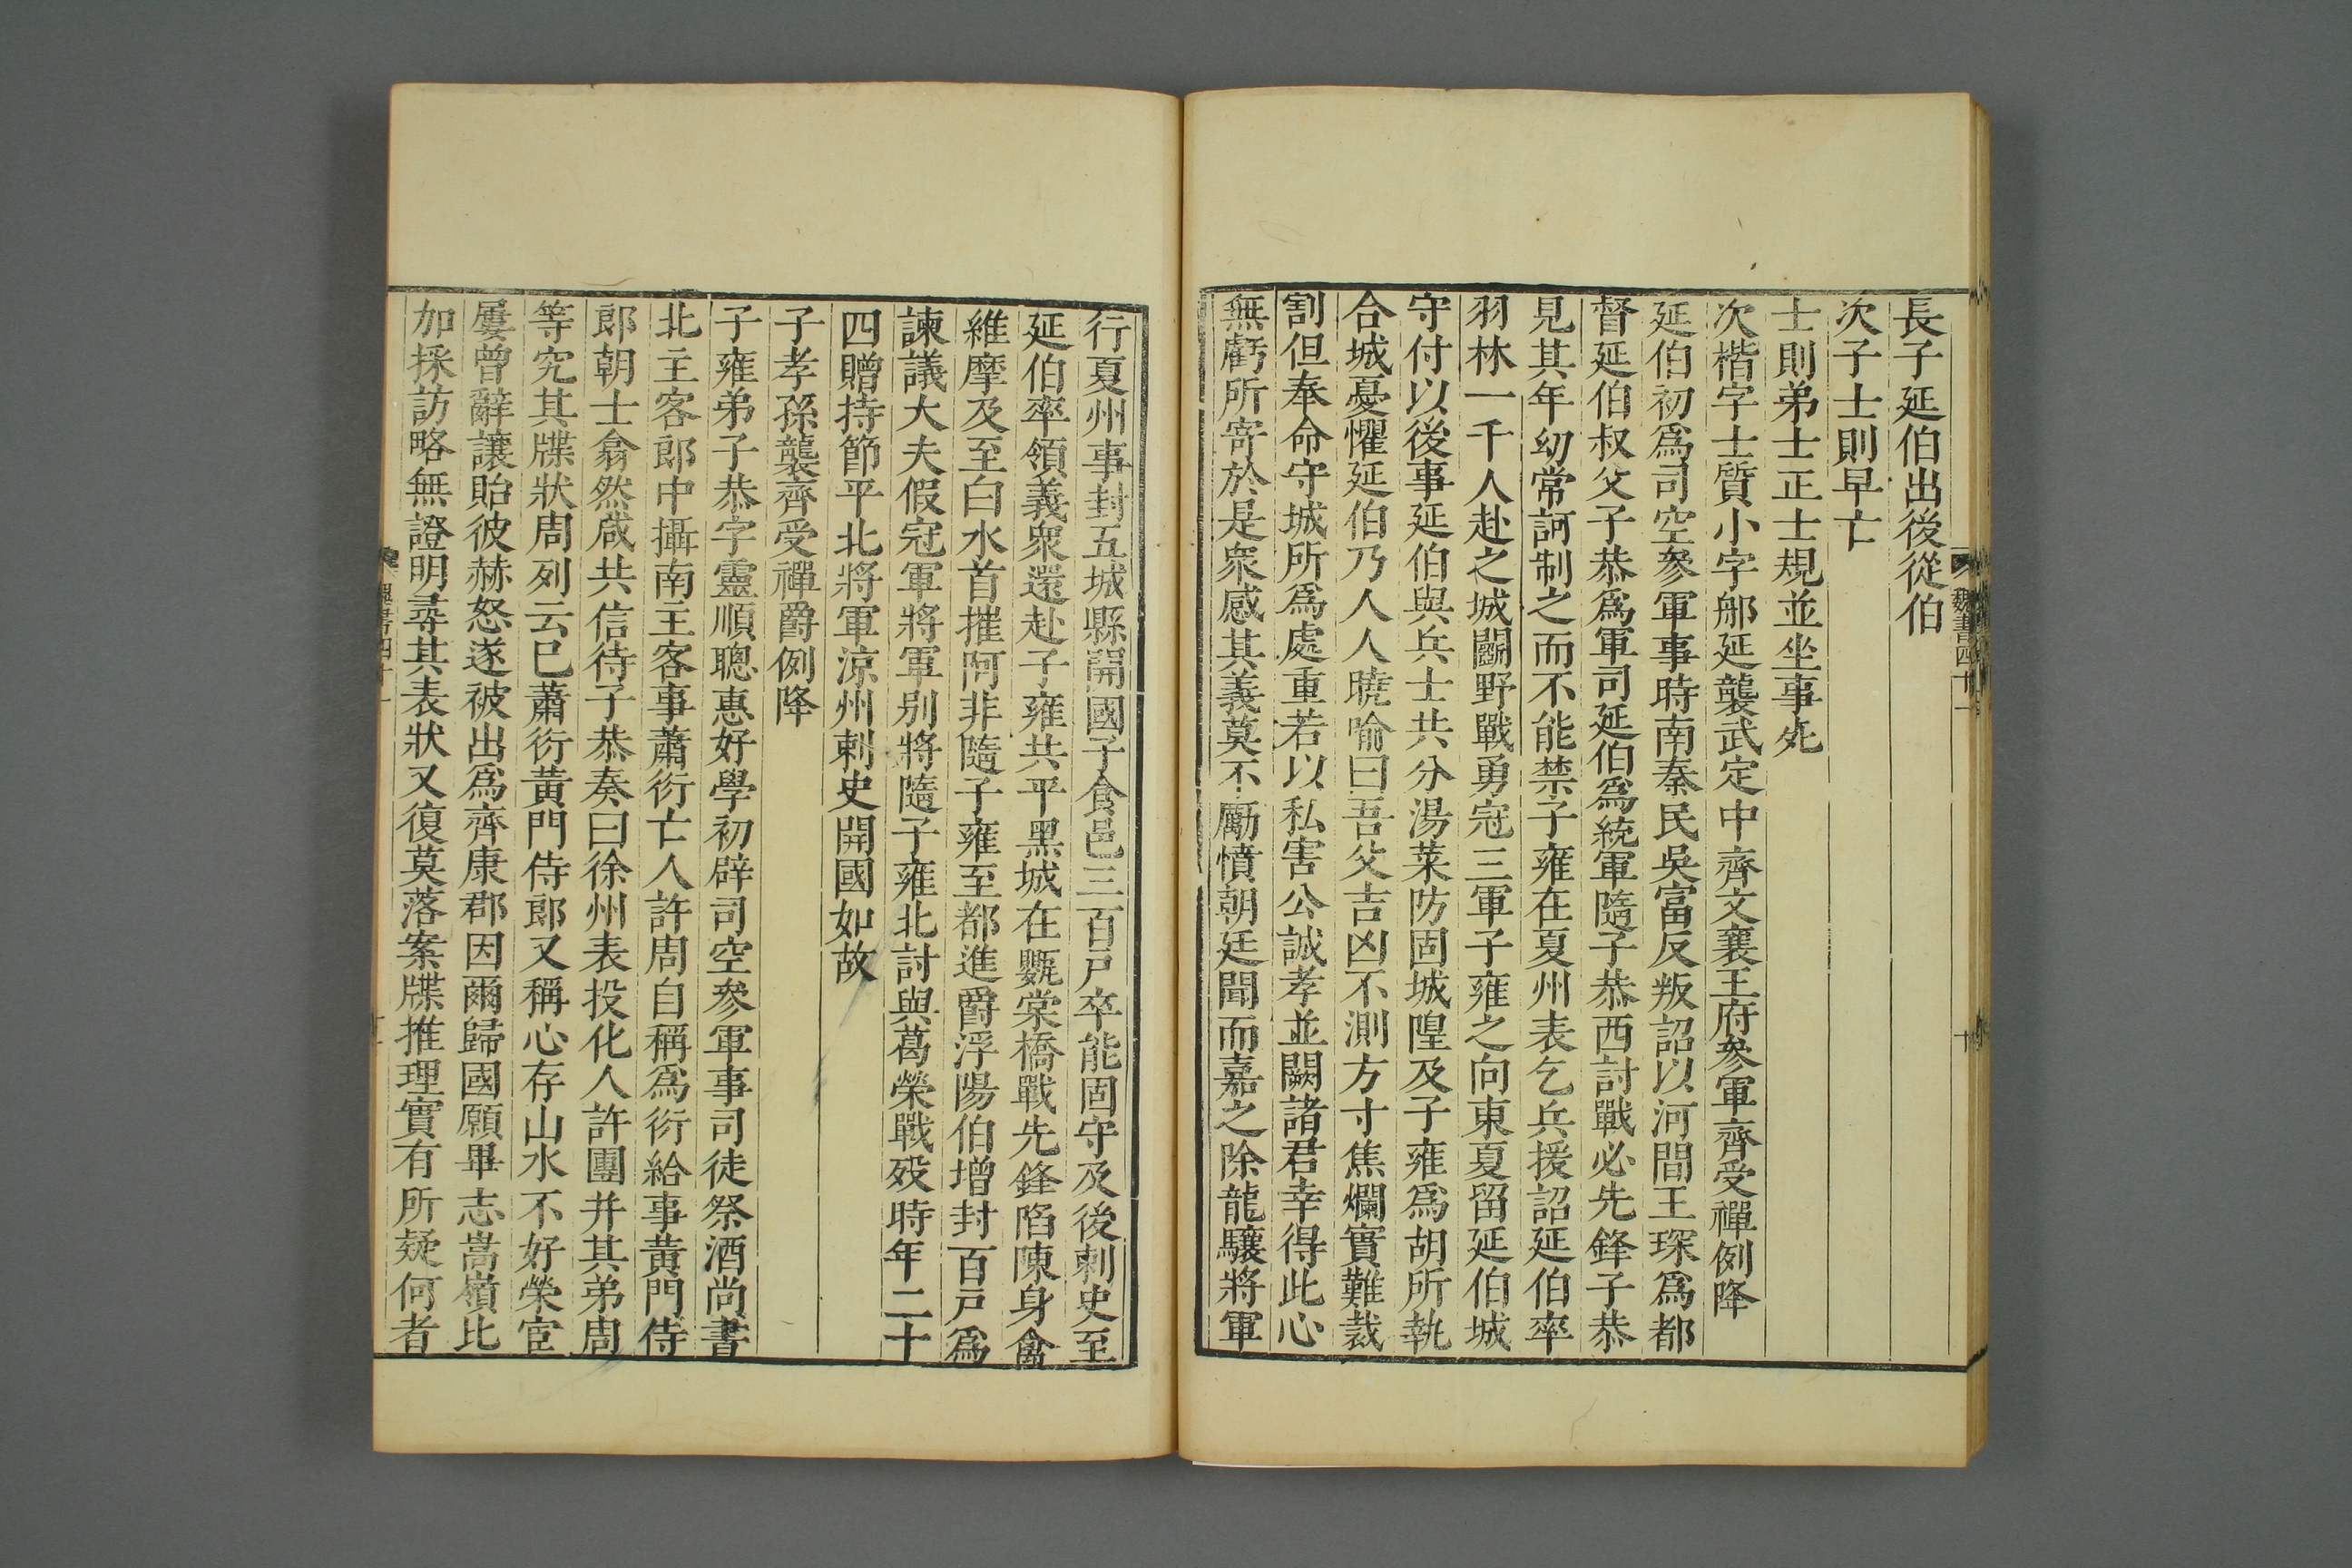 長子延伯出後從伯
次子士則早亡
士則弟士正士規並坐事死
次楷字士質小字郍延襲武定中齊文襄王府參軍齊受禪例降
延伯初爲司空參軍事時南秦民吳富反叛詔以河間王琛爲都
督延伯叔父子恭爲軍司延伯爲統軍隨子恭西討戰必先鋒子恭
見其年幼常訶制之而不能禁子雍在夏州表乞兵援詔延伯率
羽林一千人赴之城鬭野戰勇冠三軍子雍之向東夏留延伯城
守付以後事延伯與兵士共分湯菜防固城隍及子雍爲胡所執
合城憂懼延伯乃人人曉喻曰吾父吉凶不測方寸焦爛實難裁
割但奉命守城所爲處重若以私害公誠孝並闕諸君幸得此心
無虧所寄於是衆感其義莫不勵憤朝廷聞而嘉之除龍驤將軍
魏書四十一
十
行夏州事封五城縣開國子食邑三百戸卒能固守及後刺史至
延伯率領義衆還赴子雍共平黑城在甗棠橋戰先鋒陷陳身禽
維摩及至白水首摧阿非隨子雍至都進爵浮陽伯增封百戸爲
諫議大夫假冠軍將軍別將隨子雍北討與葛榮戰歿時年二十
四贈持節平北將軍涼州刺史開國如故
子孝孫襲齊受禪爵例降
子雍弟子恭字靈順聰惠好學初辟司空參軍事司徒祭酒尚書
北主客郎中攝南主客事蕭衍亡人許周自稱爲衍給事黃門侍
郎朝士翕然咸共信待子恭奏曰徐州表投化人許團并其弟周
等究其牒狀周列云已蕭衍黃門侍郎又稱心存山水不好榮宦
屢曾辭讓貽彼赫怒遂被出爲齊康郡因爾歸國願畢志嵩嶺比
加採訪略無證明尋其表狀又復莫落案牒推理實有所疑何者
魏書四十一